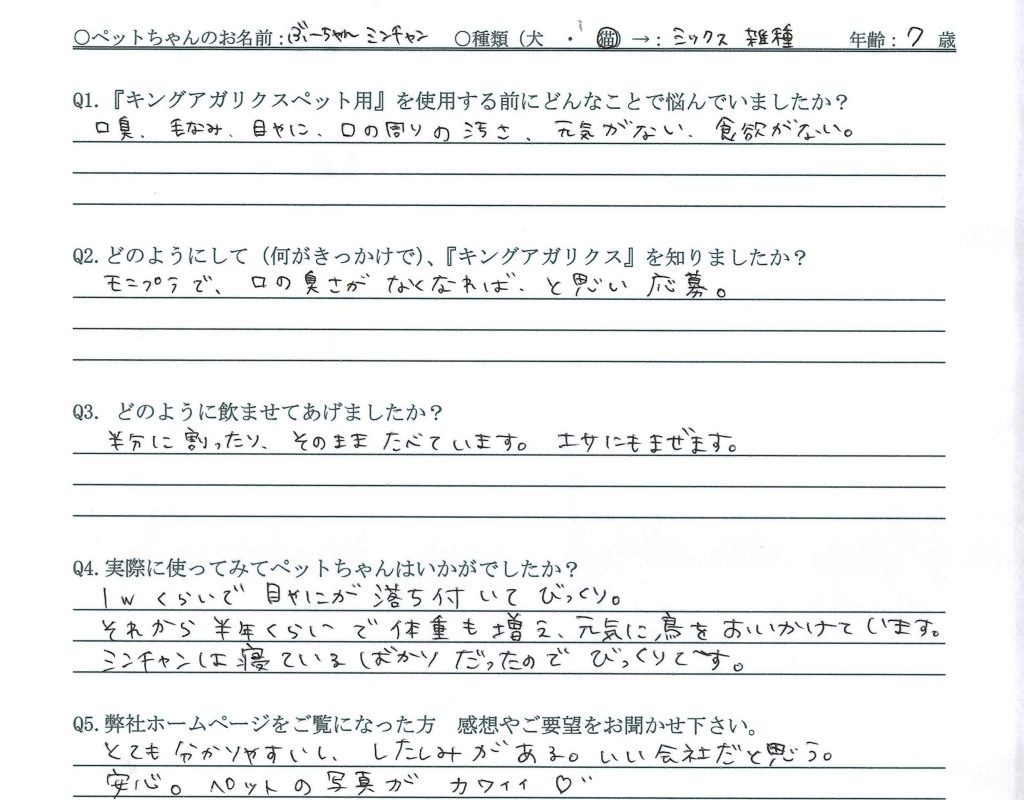 ○ペットちゃんのお名前:ぶーちゃん ミンチャン ○種類(犬 ・ 猫)→: ミックス 雑種 年齢: 7 歳
Q1.『キングアガリクスペット用』を使用する前にどんなことで悩んでいましたか?
口臭、毛なみ、目やに、口の周りの汚さ、元気がない、食欲がない。
Q2.どのようにして(何がきっかけで)、『キングアガリクス』を知りましたか?
モニプラで、口の臭さがなくなれば、と思い応募。
Q3. どのように飲ませてあげましたか?
半分に割ったり、そのままたべています。 エサにもまぜます。
Q4.実際に使ってみてペットちゃんはいかがでしたか?
1wくらいで目やにが落ち付いてびっくり。
それから半年くらいで体重も増え、元気に鳥をおいかけています。
ミンチャンは寝ているばかりだったのでびっくりです。
Q5.弊社ホームページをご覧になった方 感想やご要望をお聞かせ下さい。
とても分かりやすいし、したしみがある。いい会社だと思う。
安心。ペットの写真がカワイイ♡